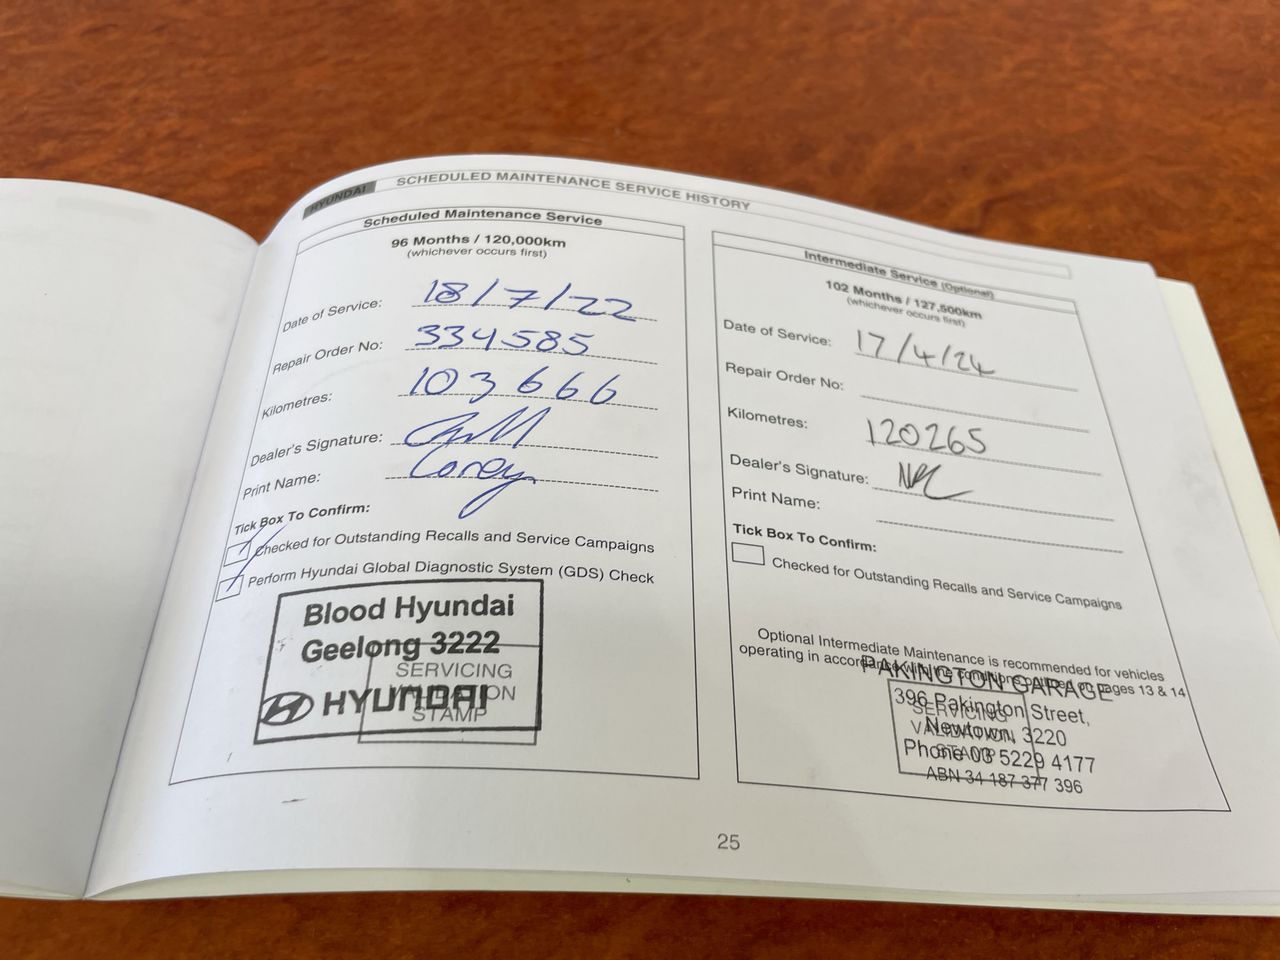 HYUNDAI SCHEDULED MAINTENANCE SERVICE HISTORY
Scheduled Maintenance Service
96 Months / 120,000km
(whichever occurs first)
Date of Service: 18/7/22
Repair Order No: 334585
Kilometres: 103666
Dealer's Signature:
Print Name: Corey
Tick Box To Confirm:
Checked for Outstanding Recalls and Service Campaigns
Perform Hyundai Global Diagnostic System (GDS) Check
Blood Hyundai
Geelong 3222
HYUNDAI
SERVICING
VALIDATION
STAMP
Intermediate Service (Optional)
102 Months / 127,500km
(whichever occurs first)
Date of Service: 17/4/24
Repair Order No:
Kilometres: 120265
Dealer's Signature:
Print Name:
Tick Box To Confirm:
Checked for Outstanding Recalls and Service Campaigns
Optional Intermediate Maintenance is recommended for vehicles
operating in accordance with the conditions outlined on pages 13 & 14
PAKINGTON GARAGE
396 Pakington Street,
Newtown, 3220
Phone 03 5229 4177
ABN 34 187 377 396
SERVICING
VALIDATION
STAMP
25